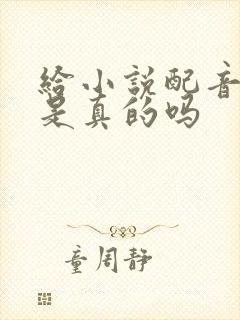 給小説配音
是真的吗
童周静